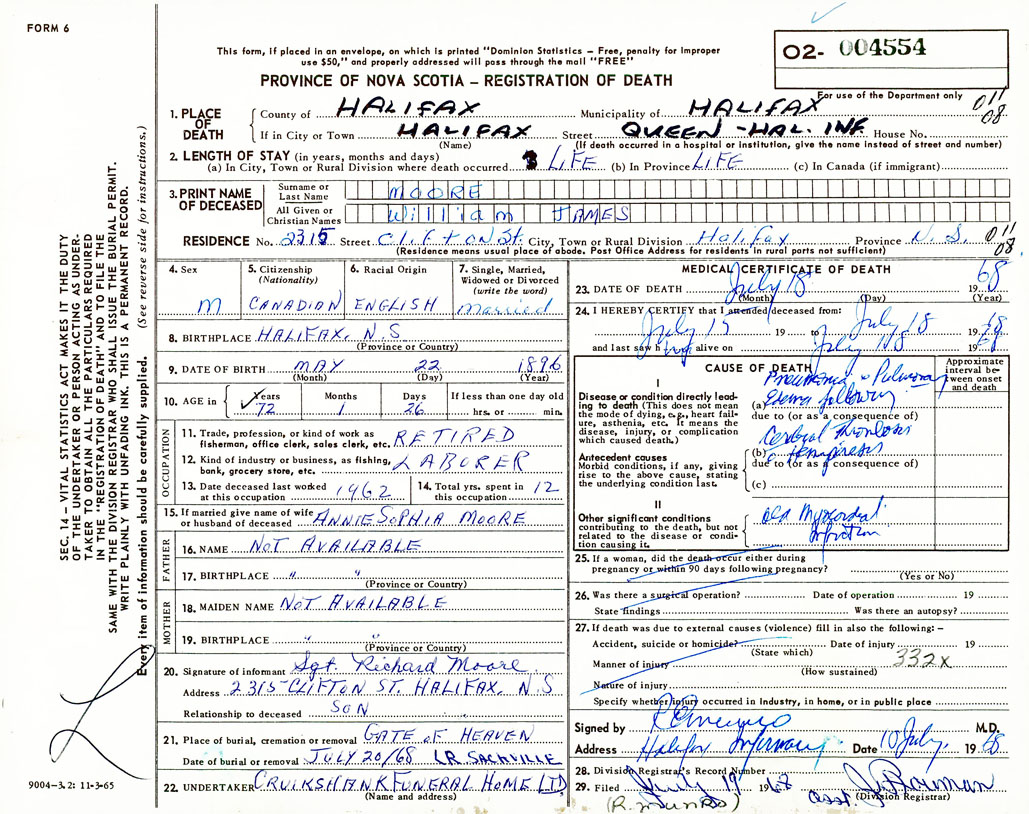 FORM 6
This form, if placed in an envelope, on which is printed "Dominion Statistics – Free, penalty for improper
use $50," and properly addressed will pass through the mail "FREE"
PROVINCE OF NOVA SCOTIA – REGISTRATION OF DEATH
O2- 004554
For use of the Department only
011
08
1. PLACE OF DEATH
County of HALIFAX Municipality of HALIFAX
If in City or Town HALIFAX Street QUEEN -HAL. INF. House No.
(Name) (If death occurred in a hospital or institution, give the name instead of street and number)
2. LENGTH OF STAY (in years, months and days)
(a) In City, Town or Rural Division where death occurred LIFE (b) In Province LIFE (c) In Canada (if immigrant)
3. PRINT NAME OF DECEASED
Surname or Last Name MOORE
All Given or Christian Names William JAMES
RESIDENCE No. 2315 Street CLIFTON St. City, Town or Rural Division Halifax Province N.S.
(Residence means usual place of abode. Post Office Address for residents in rural parts not sufficient)
011
08
4. Sex
M
5. Citizenship
(Nationality)
CANADIAN
6. Racial Origin
ENGLISH
7. Single, Married,
Widowed or Divorced
(write the word)
Married
8. BIRTHPLACE HALIFAX, N.S.
(Province or Country)
9. DATE OF BIRTH MAY 22 1896
(Month) (Day) (Year)
10. AGE in Years Months Days If less than one day old
72 1 26 hrs. or min.
OCCUPATION
11. Trade, profession, or kind of work as
fisherman, office clerk, sales clerk, etc. RETIRED
12. Kind of industry or business, as fishing,
bank, grocery store, etc. LABORER
13. Date deceased last worked
at this occupation 1962
14. Total yrs. spent in
this occupation 12
15. If married give name of wife
or husband of deceased ANNIE SOPHIA MOORE
FATHER
16. NAME NOT AVAILABLE
17. BIRTHPLACE " "
(Province or Country)
MOTHER
18. MAIDEN NAME NOT AVAILABLE
19. BIRTHPLACE " "
(Province or Country)
20. Signature of informant Sgt. Richard Moore.
Address 2315 CLIFTON ST. HALIFAX, N.S
Relationship to deceased SON
21. Place of burial, cremation or removal GATE OF HEAVEN
Date of burial or removal JULY 20/68 LR. SACKVILLE
22. UNDERTAKER CRUIKSHANK FUNERAL HOME LTD
(Name and address)
MEDICAL CERTIFICATE OF DEATH
23. DATE OF DEATH July 18 19 68
(Month) (Day) (Year)
24. I HEREBY CERTIFY that I attended deceased from:
July 15 19 to July 18 19 68
and last saw him alive on July 18 19 68
CAUSE OF DEATH
Approximate interval between onset and death
I
Disease or condition directly leading
to death (This does not mean
the mode of dying, e.g., heart failure,
asthenia, etc. It means the
disease, injury, or complication
which caused death.)
Pneumonia & Pulmonary
(a) Edema following
due to (or as a consequence of)
Cerebral Thrombosis
Antecedent causes
Morbid conditions, if any, giving
rise to the above cause, stating
the underlying condition last.
(b) c Hemiparesis
due to (or as a consequence of)
(c)
II
Other significant conditions
contributing to the death, but not
related to the disease or condition
causing it.
old Myocardial
Infarction
25. If a woman, did the death occur either during
pregnancy or within 90 days following pregnancy?
(Yes or No)
26. Was there a surgical operation? Date of operation 19
State findings Was there an autopsy?
27. If death was due to external causes (violence) fill in also the following: –
Accident, suicide or homicide? Date of injury 19
(State which)
332X
Manner of injury
(How sustained)
Nature of injury
Specify whether injury occurred in industry, in home, or in public place
Signed by M.D.
Address Halifax Infirmary Date July, 19 68
28. Division Registrar's Record Number
29. Filed July 19 1968
(R. Munro) asst. (Division Registrar)
SEC. 14 – VITAL STATISTICS ACT MAKES IT THE DUTY
OF THE UNDERTAKER OR PERSON ACTING AS UNDERTAKER
TO OBTAIN ALL THE PARTICULARS REQUIRED
IN THE "REGISTRATION OF DEATH" AND TO FILE THE
SAME WITH THE DIVISION REGISTRAR WHO SHALL ISSUE THE BURIAL PERMIT.
WRITE PLAINLY WITH UNFADING INK. THIS IS A PERMANENT RECORD.
Every item of information should be carefully supplied. (See reverse side for instructions.)
9004-3.2: 11-3-65